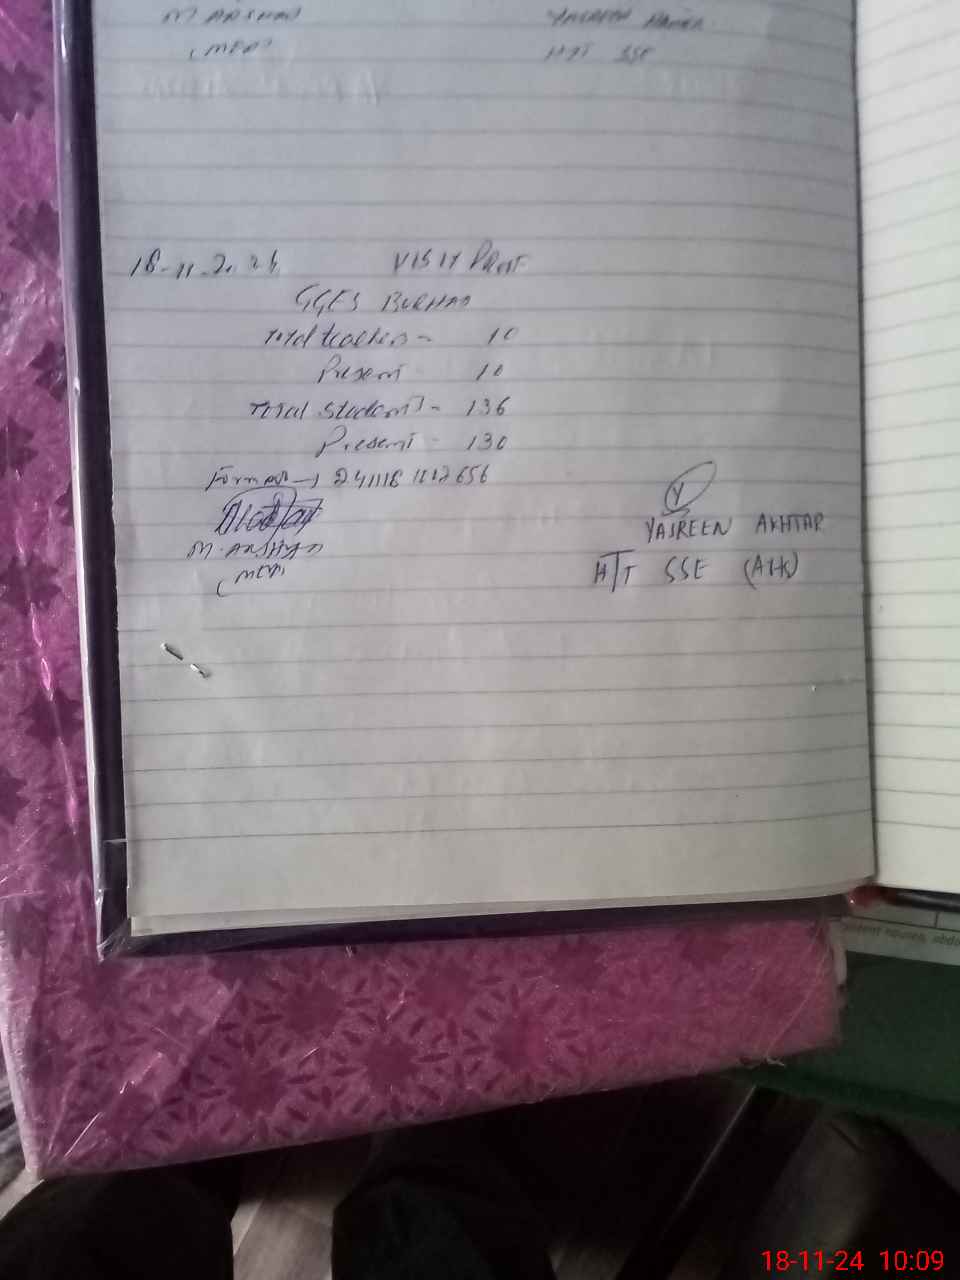 M. ARSHAD
(MEA)
YASREEN AKHTAR
H/T SSE
18-11-2024 VISIT PROF
GGES BURHAD
Total teachers - 10
Present - 10
Total students - 136
Present - 130
M. ARSHAD
(MEA)
Y
YASREEN AKHTAR
H/T SSE
18-11-24 10:09